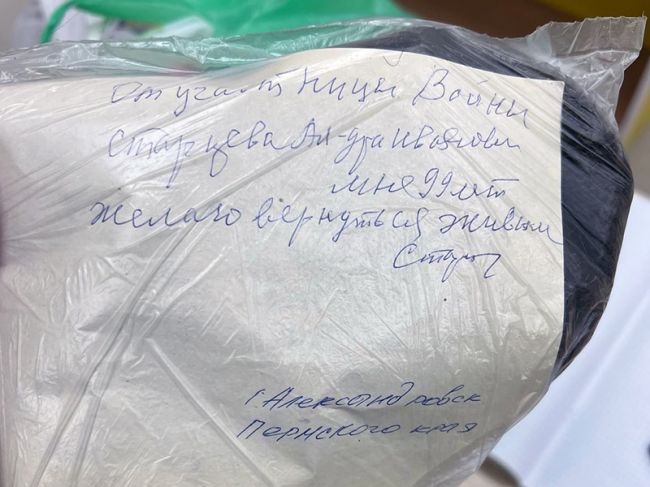 от участницы Войны
Старцева Ал-дра Ивановн
мне 99 лет
желаю вернуться живым
г. Александровск
Пермского края